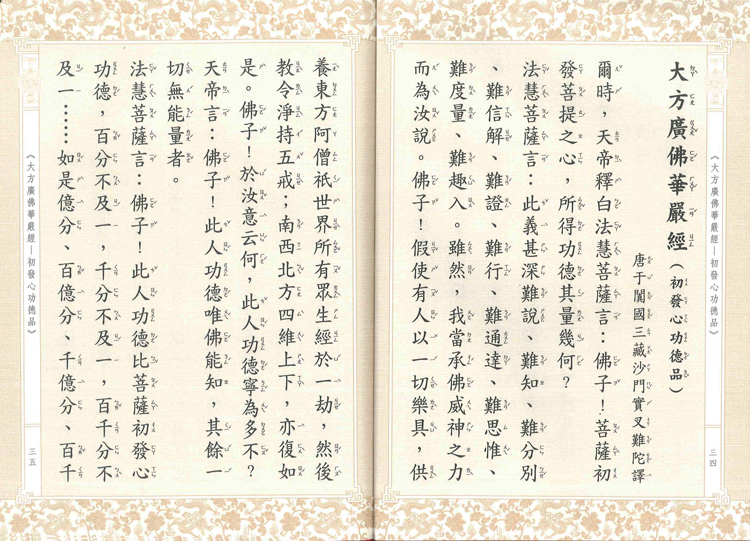 大方廣佛華嚴經（初發心功德品）
唐于闐國三藏沙門實叉難陀譯
爾時，天帝釋白法慧菩薩言：佛子！菩薩初
發菩提之心，所得功德其量幾何？
法慧菩薩言：此義甚深難說、難知、難分別
、難信解、難證、難行、難通達、難思惟、
難度量、難趣入。雖然，我當承佛威神之力
而為汝說。佛子！假使有人以一切樂具，供
《大方廣佛華嚴經—初發心功德品》
三四
養東方阿僧祇世界所有眾生經於一劫，然後
教令淨持五戒；南西北方四維上下，亦復如
是。佛子！於汝意云何，此人功德寧為多不？
天帝言：佛子！此人功德唯佛能知，其餘一
切無能量者。
法慧菩薩言：佛子！此人功德比菩薩初發心
功德，百分不及一，千分不及一，百千分不
及一……如是億分、百億分、千億分、百千
《大方廣佛華嚴經—初發心功德品》
三五